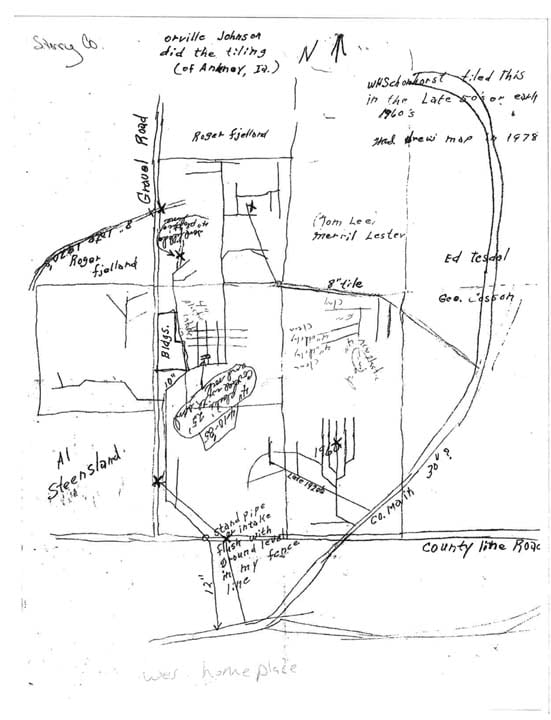 Story Co.
orville Johnson
did the tiling
(of Ankney, Ia.)
N
WHSchonhorst tiled This
in the Late 50's or early
1960's
drew map in 1978
Gravel Road
Roger fjelland
8" tile 1970,
Roger
fjelland
Tom Lee,
Merril Lester
Ed Tesdal
Geo. Cosson
8" tile
Bldgs.
10"
clay
4" clay
4-10-85
1960
Late 1920s
Al
Steensland
30" ?
Co. Main
stand pipe
or intake
flush with
ground level
in my fence
line
County line Road
12"
wes home place